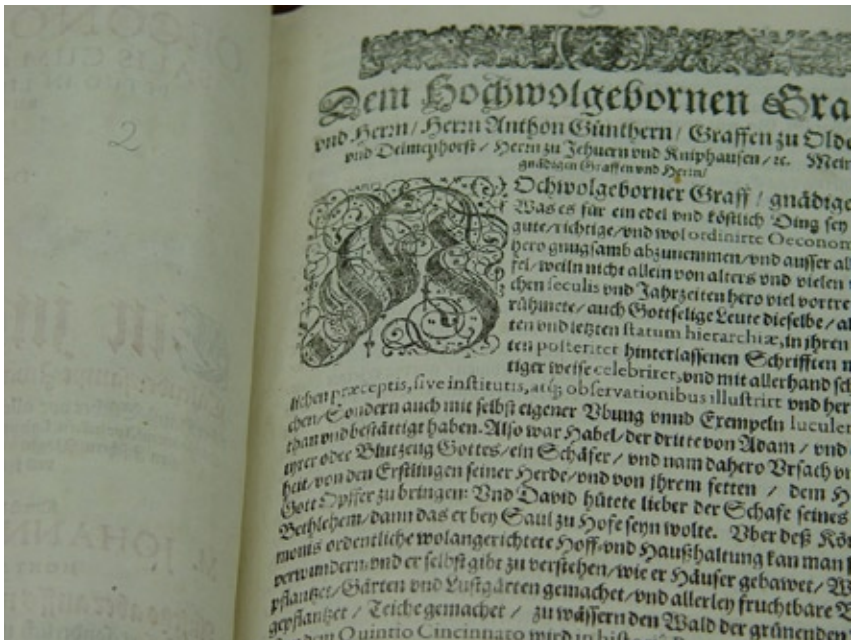 Dem Hochwolgebornen Gra
vnd Herrn / Herrn Anthon Günthern / Graffen zu Olde
vnd Delmenhorst / Herrn zu Jehuern vnd Kniphausen / ꝛc. Mein
gnädigen Graffen vnd Herrn /
HOchwolgeborner Graff / gnädige
Was es für ein edel vnd köstlich Ding sey
gute / richtige / vnd wol ordinirte Oeconom
hero gnugsamb abzunemmen / vnd ausser all
fel / weiln nicht allein von alters vnd vielen
chen seculis vnd Jahrzeiten hero viel vortre
rühmete / auch Gottselige Leute dieselbe / al
ten vnd letzten statum hierarchiæ, in ihren
ten posteritet hinterlassenen Schrifften
tiger weise celebriret, vnd mit allerhand sch
lichen præceptis, sive institutis, atq; observationibus illustrirt vnd her
chen / Sondern auch mit selbst eigener Vbung vnnd Exempeln luculen
than vnd bestättigt haben. Also war Habel / der dritte von Adam / vnd
tyrer oder Blutzeug Gottes / ein Schäfer / vnd nam dahero Vrsach
heit / von den Erstlingen seiner Herde / vnd von ihrem fetten / dem H
Gott Opffer zu bringen: Vnd David hütete lieber der Schafe seines
Bethlehem / dann das er bey Saul zu Hofe seyn wolte. Vber deß Kön
monis ordentliche wolangerichtete Hoff- vnd Haußhaltung kan man
verwundern / vnd er selbst gibt zu verstehen / wie er Häuser gebawet / W
pflantzet / Gärten vnd Lustgärten gemachet / vnd allerley fruchtbare B
gepflantzet / Teiche gemachet / zu wässern den Wald der grünenden
dem Quintio Cincinnato wird in
2
JOHANN